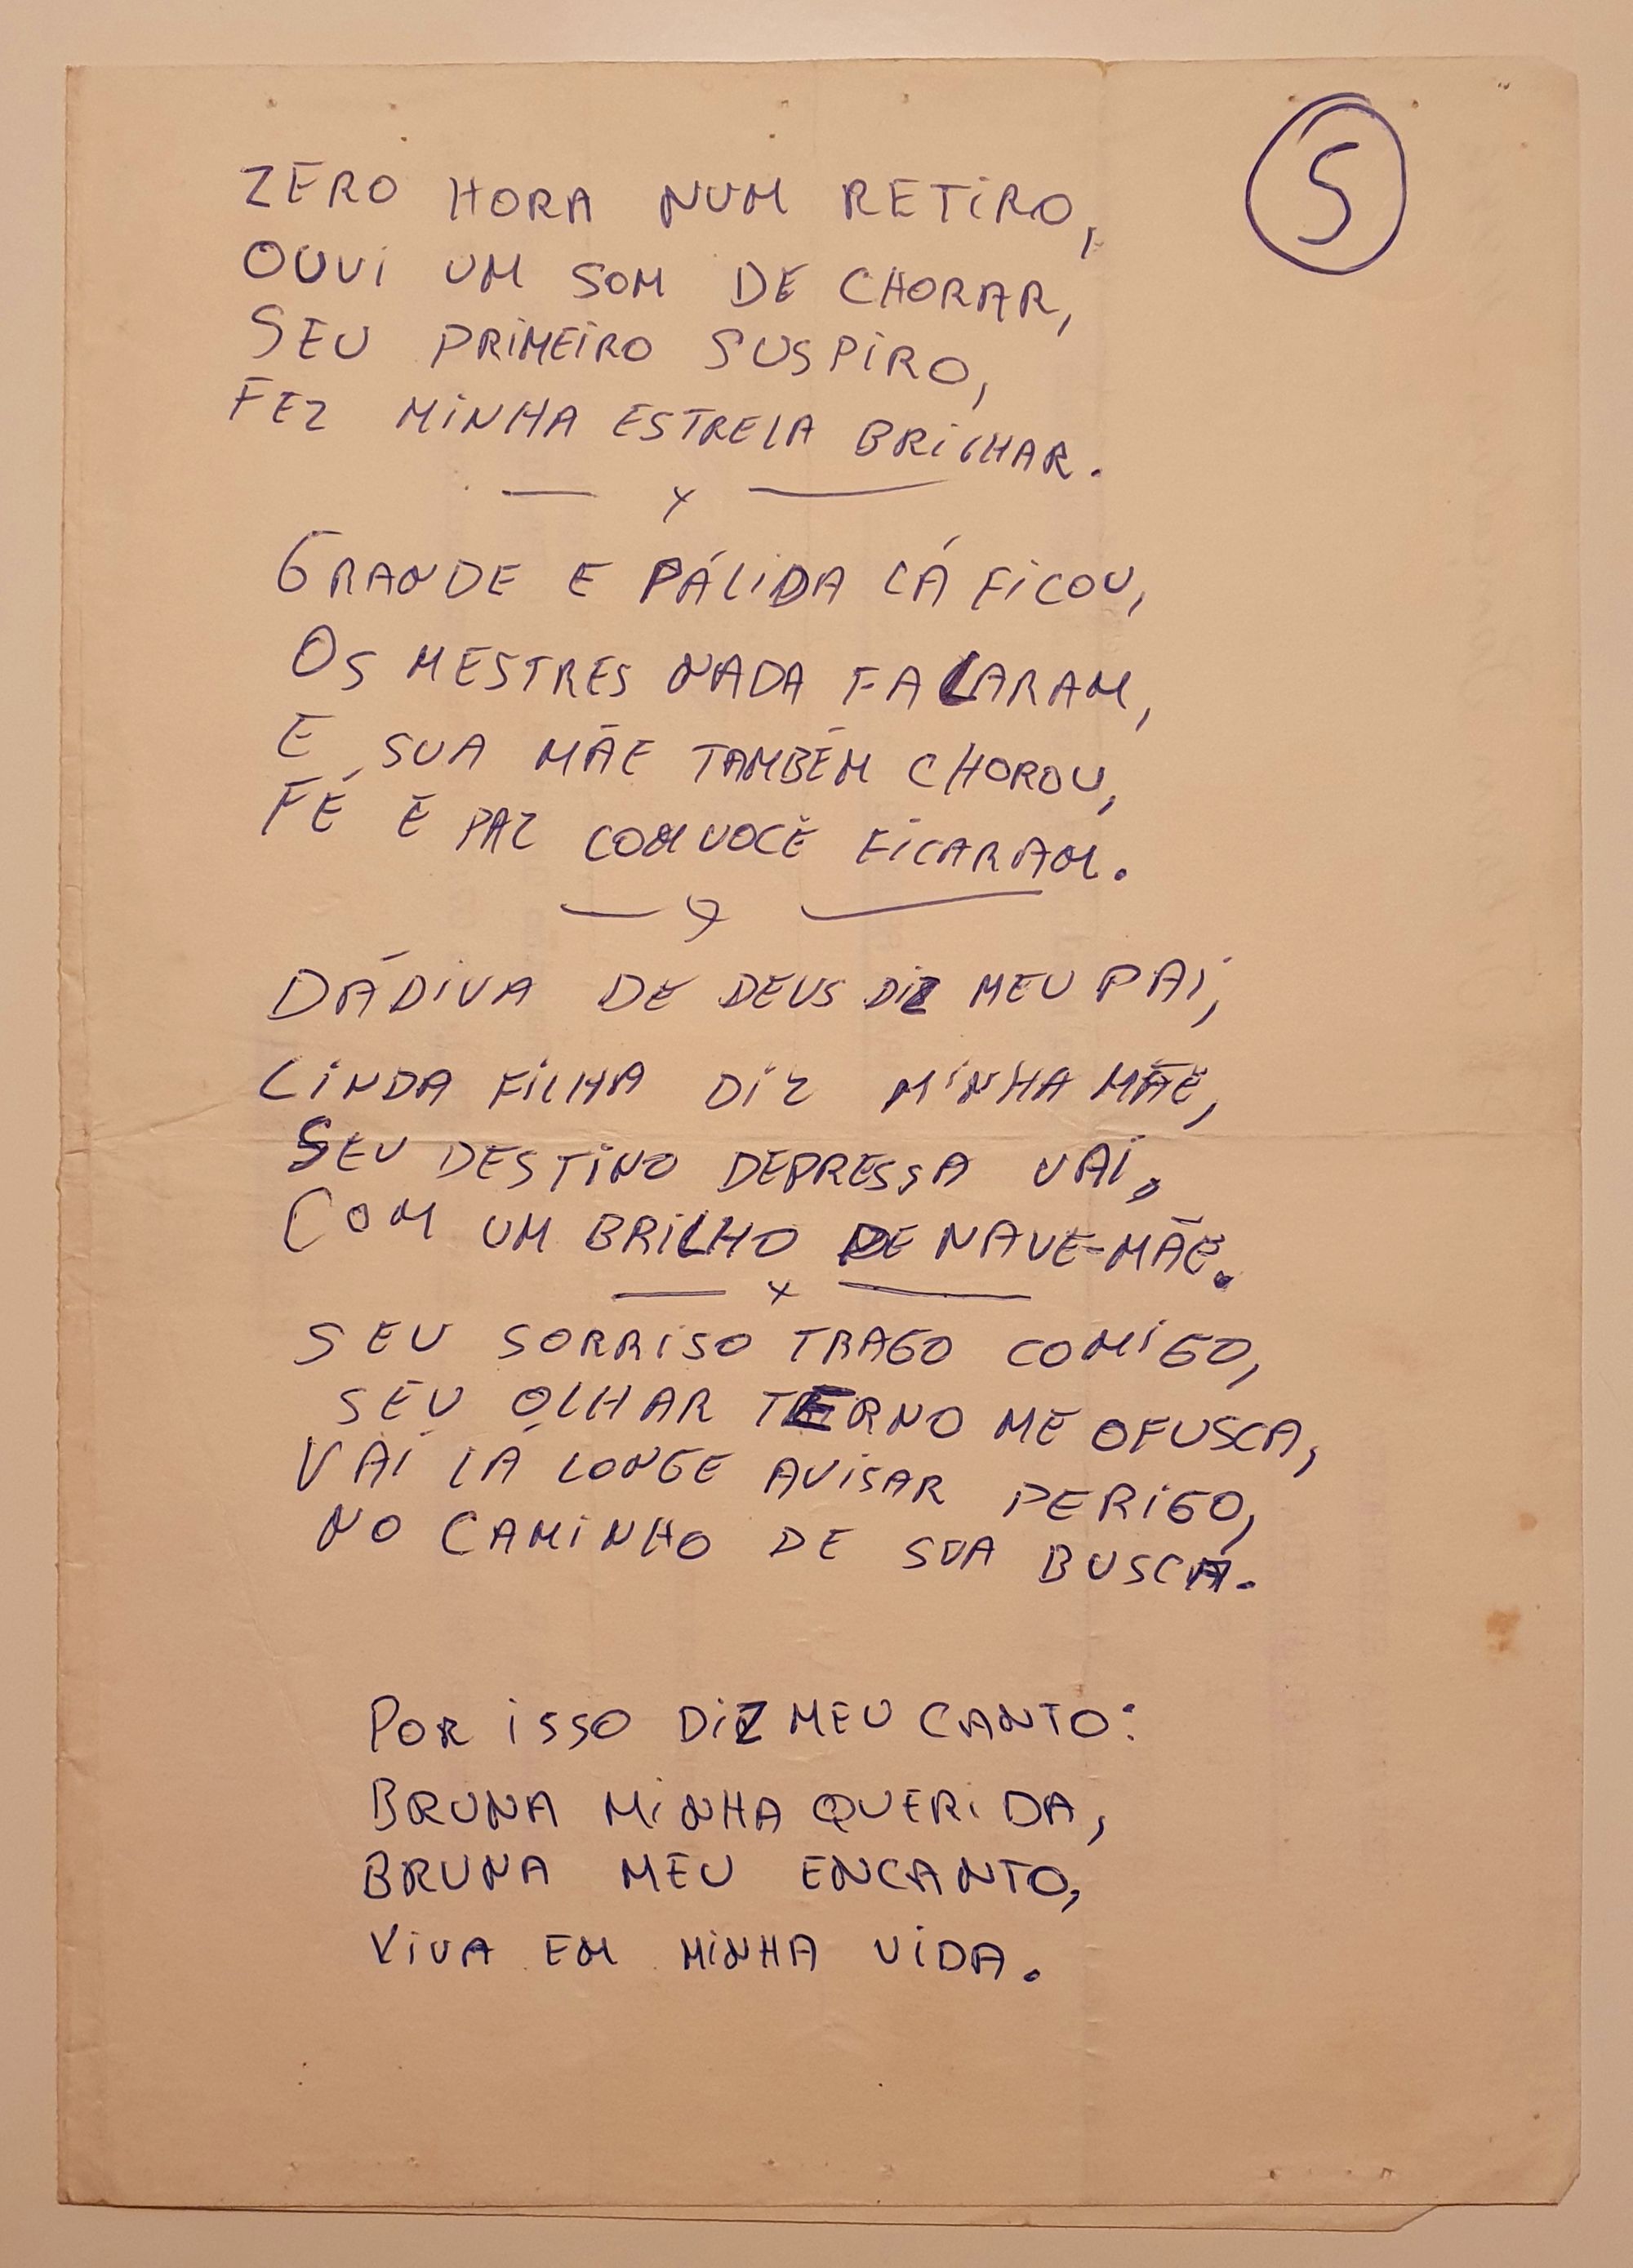 S
ZERO HORA NUM RETIRO,
OUVI UM SOM DE CHORAR,
SEU PRIMEIRO SUSPIRO,
FEZ MINHA ESTRELA BRILHAR.
— x —
GRANDE E PÁLIDA LÁ FICOU,
OS MESTRES NADA FALARAM,
E SUA MÃE TAMBÉM CHOROU,
FÉ E PAZ COM VOCÊ FICARAM.
— x —
DÁDIVA DE DEUS DIZ MEU PAI,
LINDA FILHA DIZ MINHA MÃE,
SEU DESTINO DEPRESSA VAI,
COM UM BRILHO DE NAVE-MÃE.
— x —
SEU SORRISO TRAGO COMIGO,
SEU OLHAR TERNO ME OFUSCA,
VAI LÁ LONGE AVISAR PERIGO,
NO CAMINHO DE SUA BUSCA.
POR ISSO DIZ MEU CANTO:
BRUNA MINHA QUERIDA,
BRUNA MEU ENCANTO,
VIVA EM MINHA VIDA.